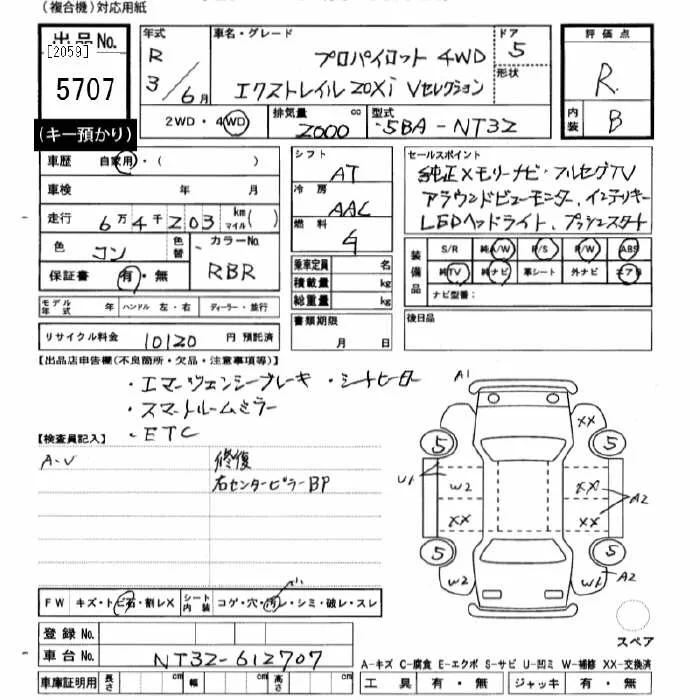 (複合機)対応用紙
出品No.
[2059]
5707
(キー預かり)
年式
R
3/6月
車名・グレード
プロパイロット 4WD
エクストレイル 20Xi Vセレクション
ドア
5
形状
2WD・4WD
排気量
2000 cc
型式
5BA-NT32
評価点
R
内装
B
車歴 自家用・( )
車検 年 月
走行 6万4千203 km マイル( )
色 コン 色替
カラーNo. RBR
保証書 有・無
モデル年式 年 ハンドル 左・右 ディーラー・並行
リサイクル料金 10120 円 預託済
シフト
AT
冷房
AAC
燃料
乗車定員 名
積載量 kg
総重量 kg
書類期限
月 日
セールスポイント
純正メモリーナビ・フルセグTV
アラウンドビューモニター、インテリキー
LEDヘッドライト、プッシュスタート
装備品
S/R 純A/W P/S P/W ABS
純TV 純ナビ 革シート 外ナビ エアB
ナビ型番:
後日品
【出品店申告欄(不良箇所・欠品・注意事項等)】
・エマージェンシーブレーキ ・シートヒーター
・スマートルームミラー
・ETC
【検査員記入】
A・V
修復
右センターピラーBP
A1
XX
5 5
U1
W2 XX
A2
XX XX
5 5
W2 W1 A2
スペア
FW キズ・トビ石・割レX シート内装 コゲ・穴・汚レ・シミ・破レ・スレ
登録No.
車台No. NT32-612707
車庫証明用 長さ cm 幅 cm 高さ cm
A-キズ C-腐食 E-エクボ S-サビ U-凹ミ W-補修 XX-交換済
工具 有・無 ジャッキ 有・無